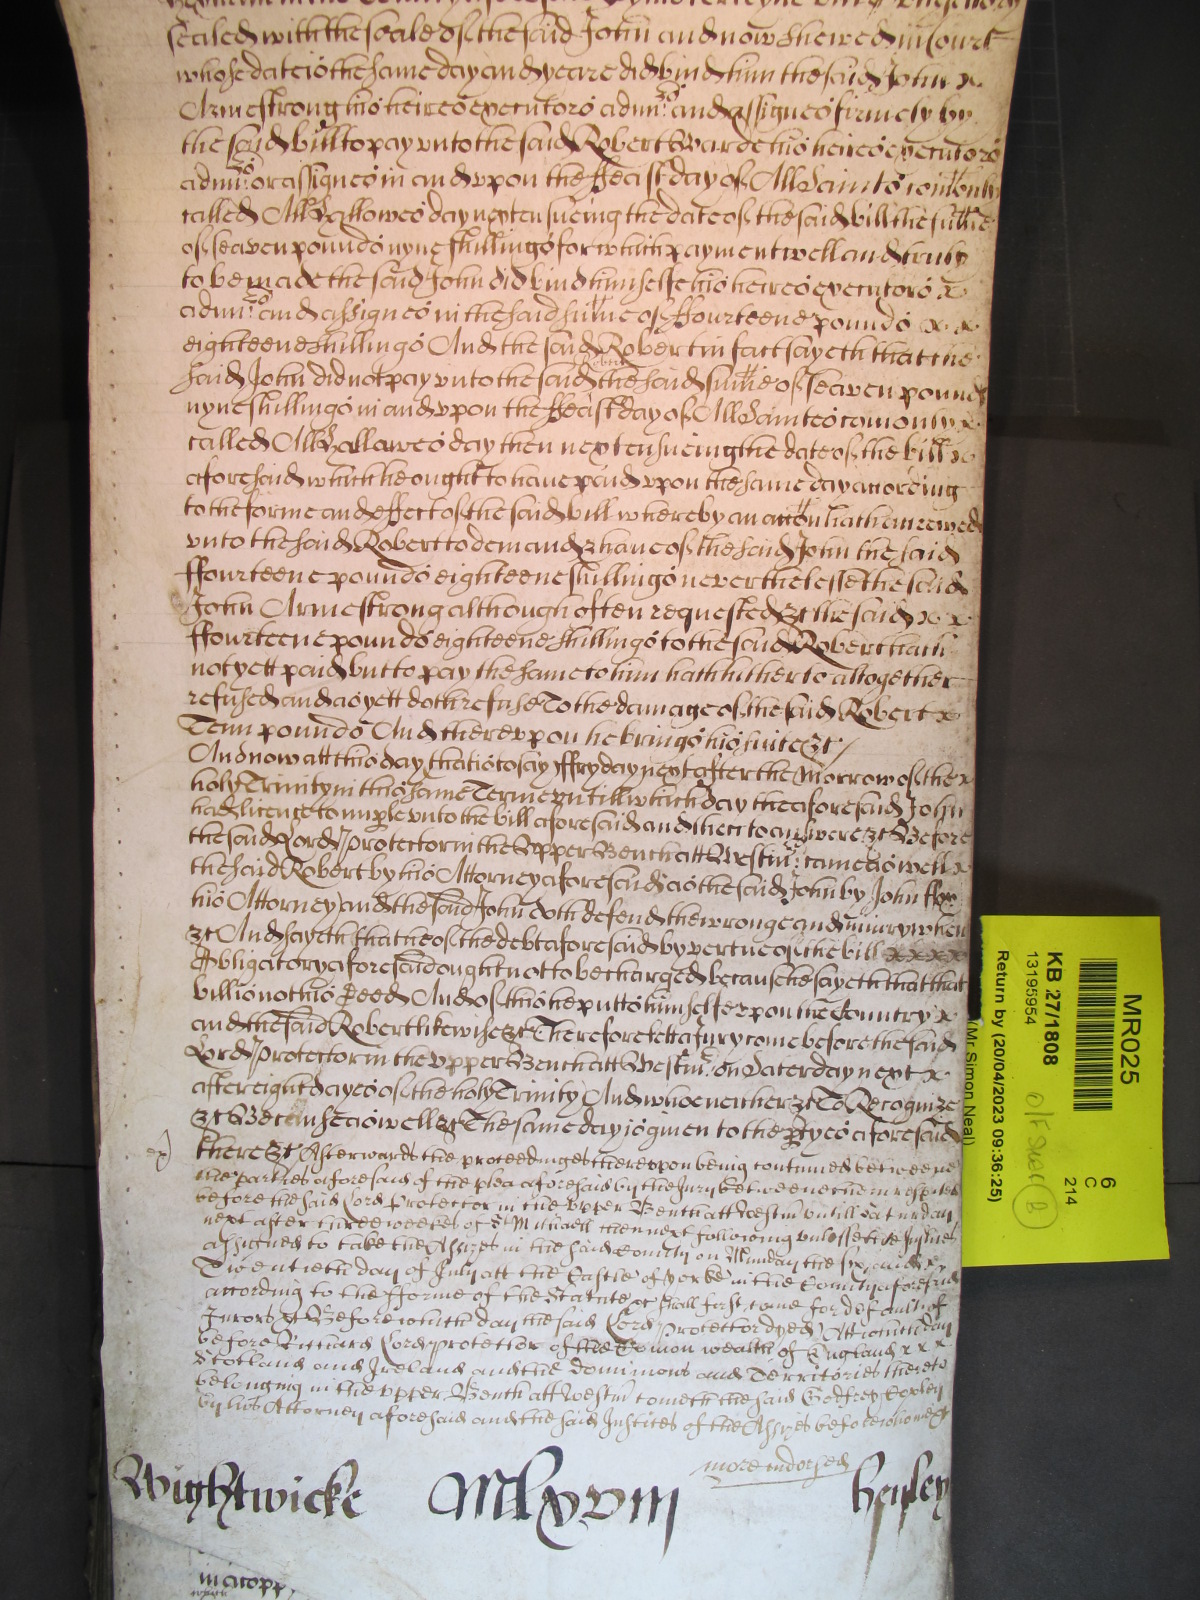 sealed with the seale of the said John and now shewed in Court
whose date is the same day and yeare did bind him the said John x
Armestrong his heires executors admrs and assignes firmely by
the said bill to pay unto the said Robert Warde his heires executors
admrs or assignes in and upon the ffeast day of All Saints comonly
called All Hallowes day next ensueing the date of the said bill the summe
of seaven pounds nyne shillings for which payment well and truly
to be made the said John did bind himselfe his heires executors x
admrs and assignes in the said summe of ffourteene pounds x x
eighteene shillings And the said Robert in fact sayeth that the
said John did not pay unto the said Robert the said summe of seaven pounds
nyne shillings in and upon the ffeast day of All Saintes comonly x
called All Hallawes day then next ensueing the date of the bill x
aforesaid which he ought to have paid upon the same day according
to the forme and effect of the said bill whereby an accon hath increwed
unto the said Robert to demand & have of the said John the said
ffourteene pounds eighteene shillings neverthelesse the said
John Armestrong although often requested &c the said x x
ffourteene pounds eighteene shillings to the said Robert hath
not yett paid but to pay the same to him hath hitherto altogether
refused and as yett doth refuse To the damage of the said Robert x
Tenn pounds And thereupon he brings his suite &c /
And now att this day that is to say ffryday next after the Morrow of the x
holy Trinity in this same Terme untill which day the aforesaid John
had licence to imple unto the bill aforesaid and then to answere &c Before
the said Lord Protector in the Upper Bench att Westmr came as well x
the said Robert by his Attorney aforesaid as the said John by John ffox
his Attorney and the said John doth defend the wronge and iniury when
&c And sayeth that he of the debt aforesaid by vertue of the bill x x x x
Obligatory aforesaid ought not to be charged because he sayeth that that
bill is not his Deed And of this he putts himselfe upon the Country x
and the said Robert likewise &c Therefore lett a Jury come before the said
Lord Protector in the upper Bench att Westmr on Saterday next x
after eight dayes of the holy Trinity And who neither &c To Recognize
&c Because as well &c The same day is given to the ptyes aforesaid
there &c Afterwards the proceedings thereupon being continued betweene
the parties aforesaid of the plea aforesaid by the Jury betweene them respited
before the said Lord Protector in the upper Bench att Westmr untill Saturday
next after three weekes of St Michaell then next following unlesse the Justices
assigned to take the Assizes in the said County on Munday the six and x
Twentieth day of July att the Castle of Yorke in the County aforesaid
according to the fforme of the Statute &c shall first come for default of
Jurors &c Before which day the said Lord Protector dyed Att which day
before Richard Lord protector of the Comon wealth of England x x x
Scotland and Ireland and the dominions and Territories thereto
belonging in the upper Bench att Westmr cometh the said Godfrey Copley
by his Attorney aforesaid and the said Justices of the Assizes before whome &c
more endorsed
Wightwicke Mlxviii Hensley
MR025
6
C
214
KB 27/1808
13195954
Return by (20/04/2023 09:36:25)
(Mr Simon Neal)